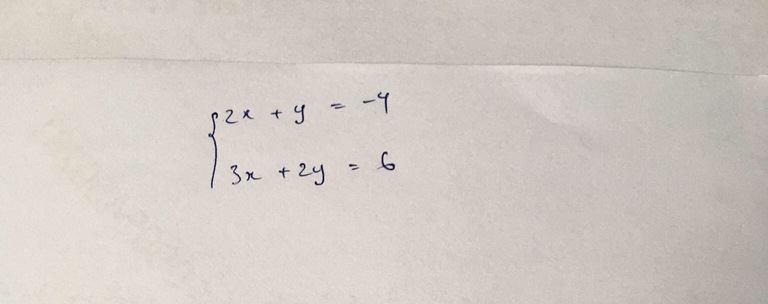 2x + y = -4
3x + 2y = 6